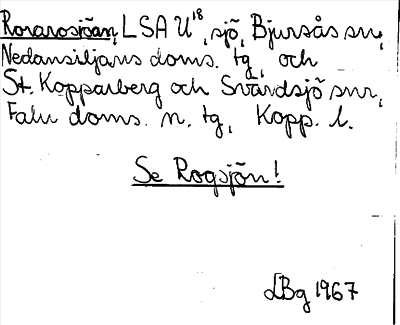 Rorarosjöan, LSA U 18, sjö, Bjursås sn,
Nedansiljans doms. tg, och
St. Kopparberg och Svärdsjö snr,
Falu doms. n. tg, Kopp. l.
Se Rogsjön!
LBg 1967